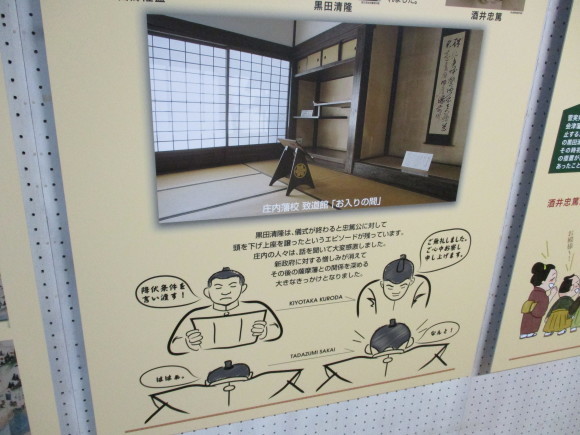 黒田清隆
酒井忠篤
庄内藩校 致道館「お入りの間」
黒田清隆は、儀式が終わると忠篤公に対して
頭を下げ上座を譲ったというエピソードが残っています。
庄内の人々は、話を聞いて大変感激しました。
新政府に対する憎しみが消えて
その後の薩摩藩との関係を深める
大きなきっかけとなりました。
降伏条件を
言い渡す!
KIYOTAKA KURODA
ご無礼しました。
ご心中お察し
申し上げます。
TADAZUMI SAKAI
ははぁ。
なんと!
会津藩
止する
の黒田
その時
の座席が
あったこと
酒井忠篤